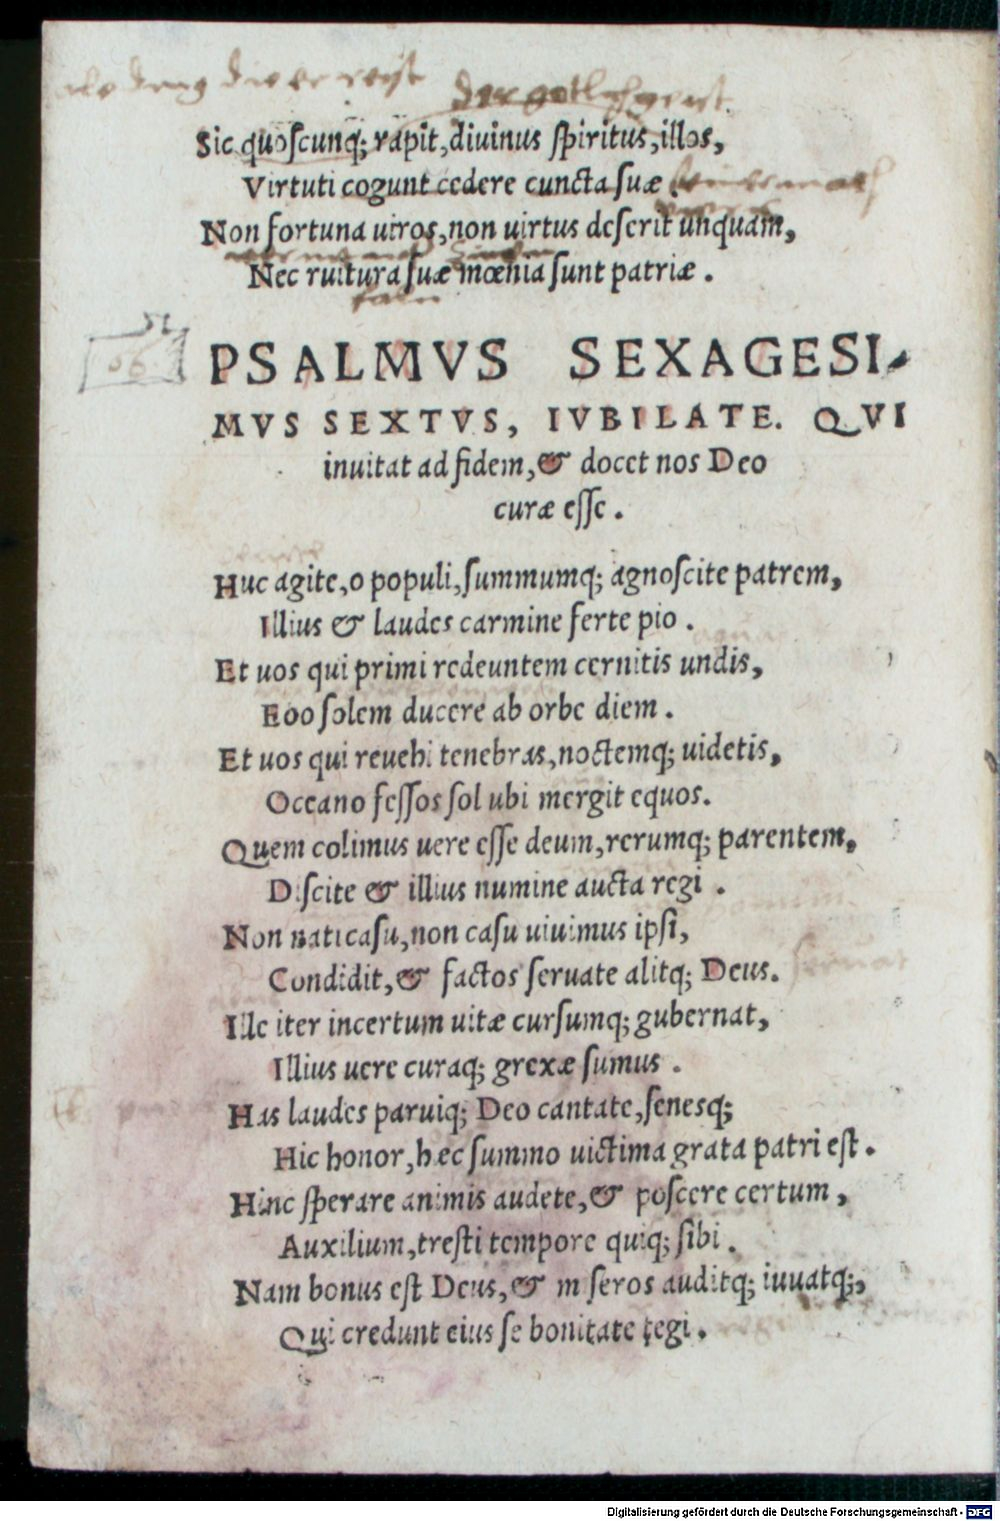 der gotlich geist.
Sic quoſcunq; rapit, diuinus ſpiritus, illos,
Virtuti cogunt cedere cuncta ſuæ.
Non fortuna uiros, non uirtus deſerit unquam,
Nec ruitura ſuæ mœnia ſunt patriæ.
66
PSALMVS SEXAGESI-
MVS SEXTVS, IVBILATE. QVI
inuitat ad fidem, & docet nos Deo
curæ eſſe.
Huc agite, o populi, ſummumq; agnoſcite patrem,
Illius & laudes carmine ferte pio.
Et uos qui primi redeuntem cernitis undis,
Eoo ſolem ducere ab orbe diem.
Et uos qui reuehi tenebras, noctemq; uidetis,
Oceano feſſos ſol ubi mergit equos.
Quem colimus uere eſſe deum, rerumq; parentem,
Diſcite & illius numine aucta regi.
Non nati caſu, non caſu uiuimus ipſi,
Condidit, & factos ſeruate alitq; Deus.
Ille iter incertum uitæ curſumq; gubernat,
Illius uere curaq; grexæ ſumus.
Has laudes paruiq; Deo cantate, ſenesq;
Hic honor, hæc ſummo uictima grata patri eſt.
Hinc ſperare animis audete, & poſcere certum,
Auxilium, treſti tempore quiq; ſibi.
Nam bonus eſt Deus, & miſeros auditq; iuuatq;,
Qui credunt eius ſe bonitate tegi.
Digitalisierung gefördert durch die Deutsche Forschungsgemeinschaft - DFG